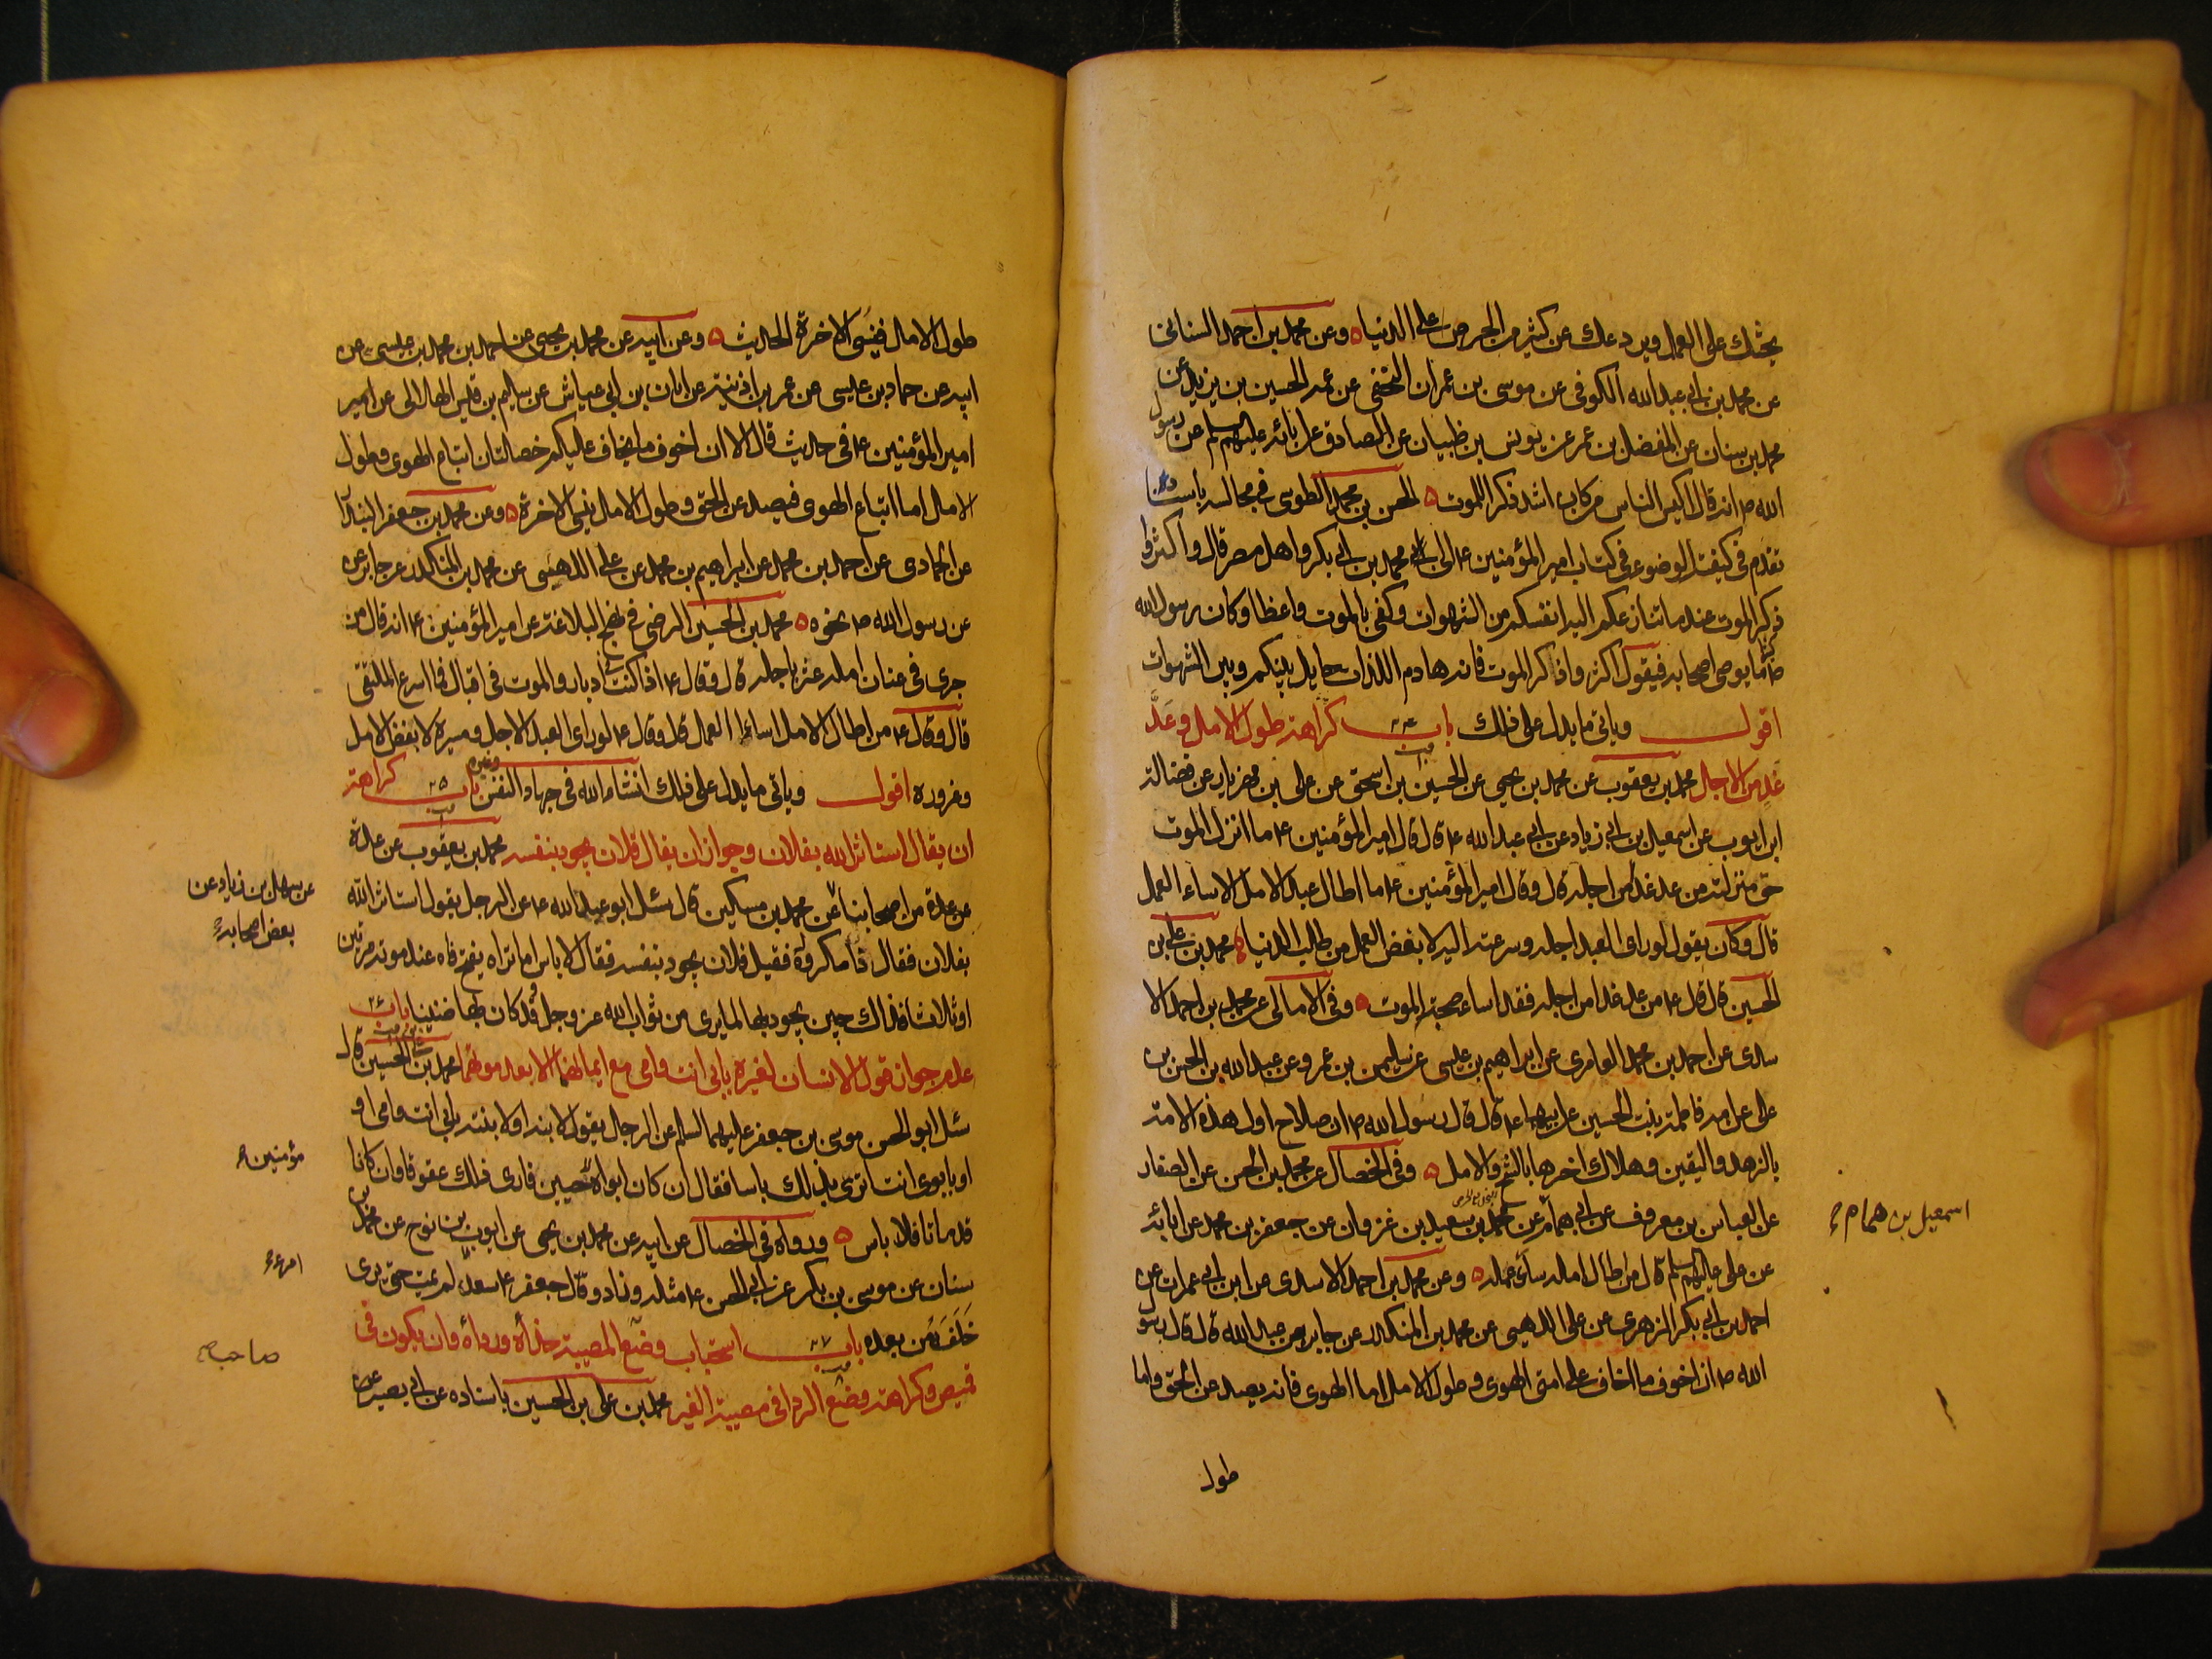 يحثك على العمل ويردعك عن كثير من الحرص على الدنيا ه وعن محمد بن احمد السنانى
عن محمد بن ابى عبد الله الكوفى عن موسى بن عمران النخعى عن عمه الحسين بن يزيد عن
محمد بن سنان عن المفضل بن عمر عن يونس بن ظبيان عن الصادق عن ابائه عليهم السلم عن رسول
الله ص انه قال اكيس الناس من كان اشد ذكر اللموت ه الحسن بن محمد الطوسى فى مجالسه باسناد
تقدم فى كيفية الوضوء فى كتاب امير المؤمنين ع الى محمد بن ابى بكر واهل مصر قال واكثروا
ذكر الموت عند ما تنازعكم اليه انفسكم من الشهوات وكفى بالموت واعظا وكان رسول الله
ص كثيرا ما يوصى اصحابه فيقول اكثروا ذكر الموت فانه هادم اللذات حايل بينكم وبين الشهوات
اقول وياتى ما يدل على ذلك باب ٢٤ كراهة طول الامل وعدّ
غد من الاجال محمد بن يعقوب عن محمد بن يحيى عن الحسين بن اسحق عن على بن مهزيار عن فضالة
ابن ايوب عن اسمعيل بن ابى زياد عن ابى عبد الله ع قال قال امير المؤمنين ع ما انزل الموت
حق منزلته من عد غدا من اجله قال وقال امير المؤمنين ع ما اطال عبد الامل الا ساء العمل
قال وكان يقول لو راى العبد اجله وسرعته اليه لابغض العمل من طلب الدنيا ه محمد بن على بن
الحسين قال قال ع من عد غدا من اجله فقد اساء صحبة الموت ه وفى الامالى عن محمد بن احمد الا
سدى عن احمد بن محمد العامرى عن ابراهيم بن عيسى عن سليمن بن عمرو عن عبد الله بن الحسن بن
على عن امه فاطمة بنت الحسين عن ابيها ع قال قال رسول الله ص ان صلاح اول هذه الامة
بالزهد واليقين وهلاك اخرها بالشح والامل ه وفى الخصال عن محمد بن الحسن عن الصفار
عن العباس بن معروف عن ابى همام عن محمد بن سعيد بن غزوان عن جعفر بن محمد عن ابائه
اسمعيل بن همام
عن على عليهم السلم قال من اطال امله ساء عمله ه وعن محمد بن احمد الاسدى عن ابن ابى عمران عن
احمد بن ابى بكر الزهرى عن على اللهبى عن محمد بن المنكدر عن جابر بن عبد الله قال قال رسول
الله ص ان اخوف ما اخاف على امتى الهوى وطول الامل اما الهوى فانه يصد عن الحق واما
طول
طول الامال فينسى الاخرة الحديث ه وعن ابيه عن محمد بن يحيى عن احمد بن محمد بن عيسى عن
ابيه عن حماد بن عيسى عن عمر بن اذينة عن ابان بن ابى عياش عن سليم بن قيس الهلالى عن امير
امير المؤمنين ع فى حديث قال الا ان اخوف ما اخاف عليكم خصلتان اتباع الهوى وطول
الامال اما اتباع الهوى فيصد عن الحق وطول الامال ينسى الاخرة ه وعن محمد بن جعفر
عن الحمادى عن احمد بن محمد عن ابراهيم بن محمد عن على اللهبى عن محمد بن المنكدر عن جابر عن
عن رسول الله ص نحوه ه محمد بن الحسين الرضى فى نهج البلاغة عن امير المؤمنين ع انه قال من
جرى فى عنان امله عثر باجله قال وقال ع اذا كنت فى ادبار والموت فى اقبال فما اسرع الملتقى
قال وقال ع من اطال الامل اساء العمل قال وقال ع لو راى العبد الاجل ومسيره لابغض الامل
وغروره اقول وياتى ما يدل على ذلك انشاء الله فى جهاد النفس وغيره باب ٢٥ كراهة
ان يقال استاثر الله بفلان وجواز ان يقال فلان يجود بنفسه محمد بن يعقوب عن عدة
عن عدة من اصحابنا عن محمد بن مسكين قال سئل ابو عبد الله ع عن الرجل يقول استاثر الله
عن سهل بن زياد عن
بعض اصحابه
بفلان فقال ذا مكروه فقيل فلان يجود بنفسه فقال لا باس اما تراه يفتح فاه عند موته مرتين
او ثلاثا فذاك حين يجود بها لما يرى من ثواب الله عز وجل وقد كان بها ضنينا باب ٢٦
عدم جواز قول الانسان لغيره بابى انت وامى مع ايمانهما الا بعد موتهما محمد بن على بن الحسين قال
سئل ابو الحسن موسى بن جعفر عليهما السلم عن الرجل يقول لابنه او لابنته بابى انت وامى او
او بابوى انت اترى بذلك باسا فقال ان كان ابواه حيين فارى ذلك عقوقا وان كانا
مؤمنين
قد ماتا فلا باس ه ورواه فى الخصال عن ابيه عن محمد بن يحيى عن ايوب بن نوح عن محمد بن
سنان عن موسى بن بكر عن ابى الحسن ع مثله وزاد وقال جعفر ع سعد لم يمت حتى يرى
امرء
خلفه من بعده باب ٢٧ استحباب وضع صاحب المصيبة حذاه ورداه وان يكون فى
صاحب
قميص وكراهة وضع الردا فى مصيبة الغير محمد بن على بن الحسين باسناده عن ابى بصير عن